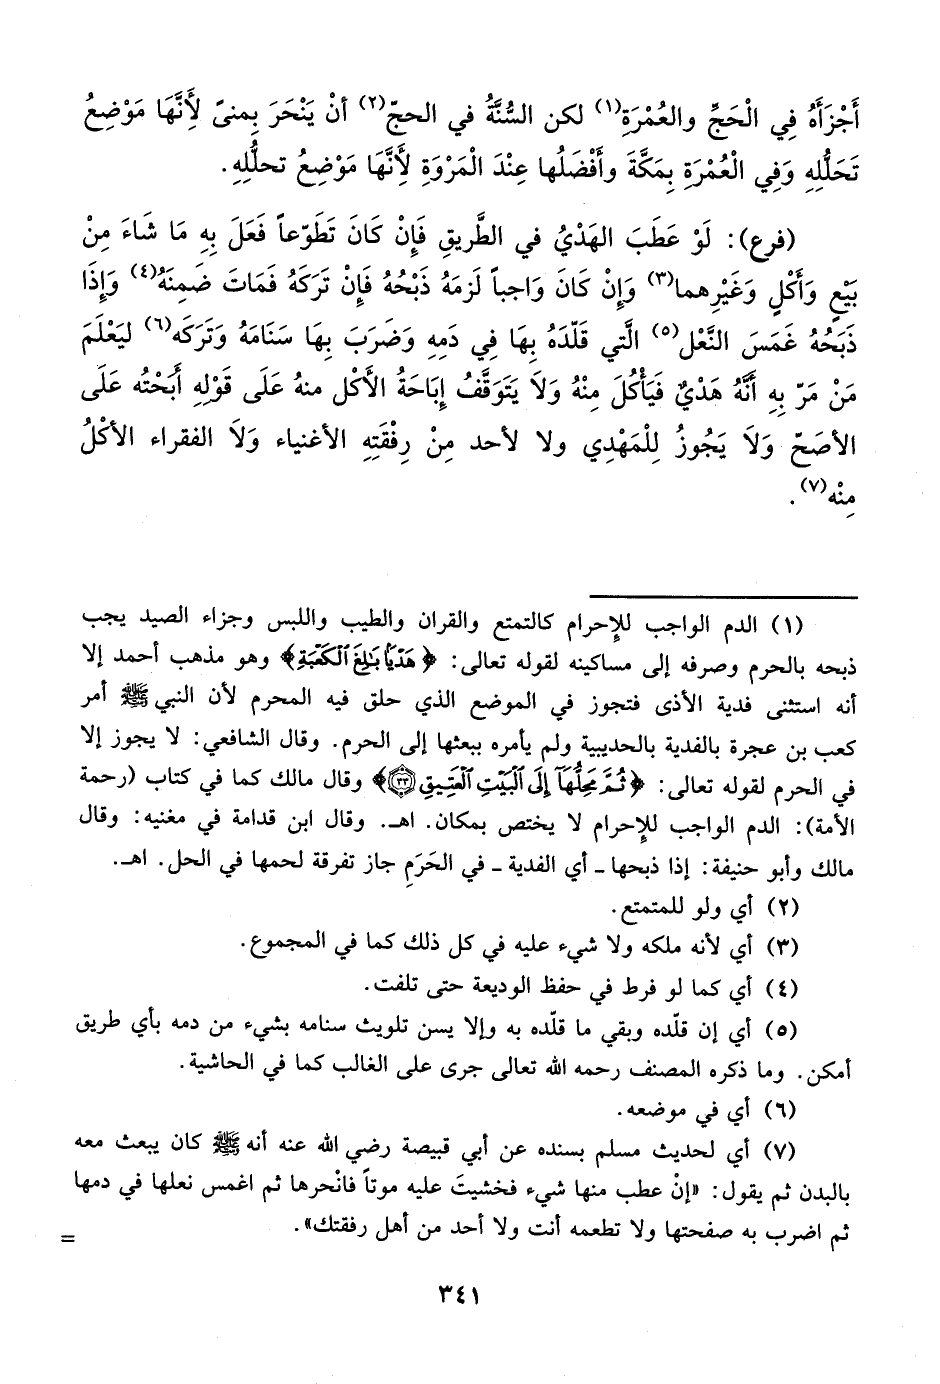 أَجْزَأَهُ فِي الْحَجِّ والعُمْرَةِ(١) لكن السُّنَّةُ في الحجّ(٢) أنْ يَنْحَرَ بِمنىً لِأَنَّهَا مَوْضِعُ
تَحَلُّلِهِ وَفِي الْعُمْرَةِ بِمَكَّةَ وأَفْضَلُها عِنْدَ الْمَرْوَةِ لِأَنَّهَا مَوْضِعُ تحلُّلِهِ.
(فرع): لَوْ عَطَبَ الهَدْيُ في الطَّريقِ فَإِنْ كَانَ تَطَوّعاً فَعَلَ بِهِ مَا شَاءَ مِنْ
بَيْعٍ وَأَكْلٍ وَغَيْرِهما(٣) وَإِنْ كَانَ وَاجباً لَزِمَهُ ذَبْحُهُ فَإِنْ تَرَكَهُ فَمَاتَ ضَمِنَهُ(٤) وَإِذَا
ذَبَحُهُ غَمَسَ النَّعْلَ(٥) الَّتي قَلّدَهُ بِهَا فِي دَمِهِ وَضَرَبَ بِهَا سَنَامَهُ وَتَرَكَه(٦) ليَعْلَمَ
مَنْ مَرّ بِهِ أَنَّهُ هَدْيٌ فَيَأْكُلَ مِنْهُ وَلَا يَتَوَقَّفُ إِبَاحَةُ الأَكْل منهُ عَلَى قَوْلِهِ أَبَحْتُه عَلَى
الأصَحّ وَلَا يَجُوزُ لِلْمَهْدِي ولا لأحد مِنْ رِفْقَتِهِ الأغنياء وَلَا الفقراء الأكْلُ
مِنْه(٧).
(١) الدم الواجب للإحرام كالتمتع والقران والطيب واللبس وجزاء الصيد يجب
ذبحه بالحرم وصرفه إلى مساكينه لقوله تعالى: ﴿هَدْيًا بَالِغَ الْكَعْبَةِ﴾ وهو مذهب أحمد إلا
أنه استثنى فدية الأذى فتجوز في الموضع الذي حلق فيه المحرم لأن النبي ﷺ أمر
كعب بن عجرة بالفدية بالحديبية ولم يأمره ببعثها إلى الحرم. وقال الشافعي: لا يجوز إلا
في الحرم لقوله تعالى: ﴿ثُمَّ مَحِلُّهَا إِلَى الْبَيْتِ الْعَتِيقِ ٣٣﴾ وقال مالك كما في كتاب (رحمة
الأمة): الدم الواجب للإحرام لا يختص بمكان. اهـ. وقال ابن قدامة في مغنيه: وقال
مالك وأبو حنيفة: إذا ذبحها - أي الفدية - في الحَرَمِ جاز تفرقة لحمها في الحل. اهـ.
(٢) أي ولو للمتمتع.
(٣) أي لأنه ملكه ولا شيء عليه في كل ذلك كما في المجموع.
(٤) أي كما لو فرط في حفظ الوديعة حتى تلفت.
(٥) أي إن قلّده وبقي ما قلّده به وإلا يسن تلويث سنامه بشيء من دمه بأي طريق
أمكن. وما ذكره المصنف رحمه الله تعالى جرى على الغالب كما في الحاشية.
(٦) أي في موضعه.
(٧) أي لحديث مسلم بسنده عن أبي قبيصة رضي الله عنه أنه ﷺ كان يبعث معه
بالبدن ثم يقول: «إنْ عطب منها شيء فخشيتَ عليه موتاً فانْحرها ثم اغمس نعلها في دمها
ثم اضرب به صفحتها ولا تطعمه أنت ولا أحد من أهل رفقتك».
=
٣٤١